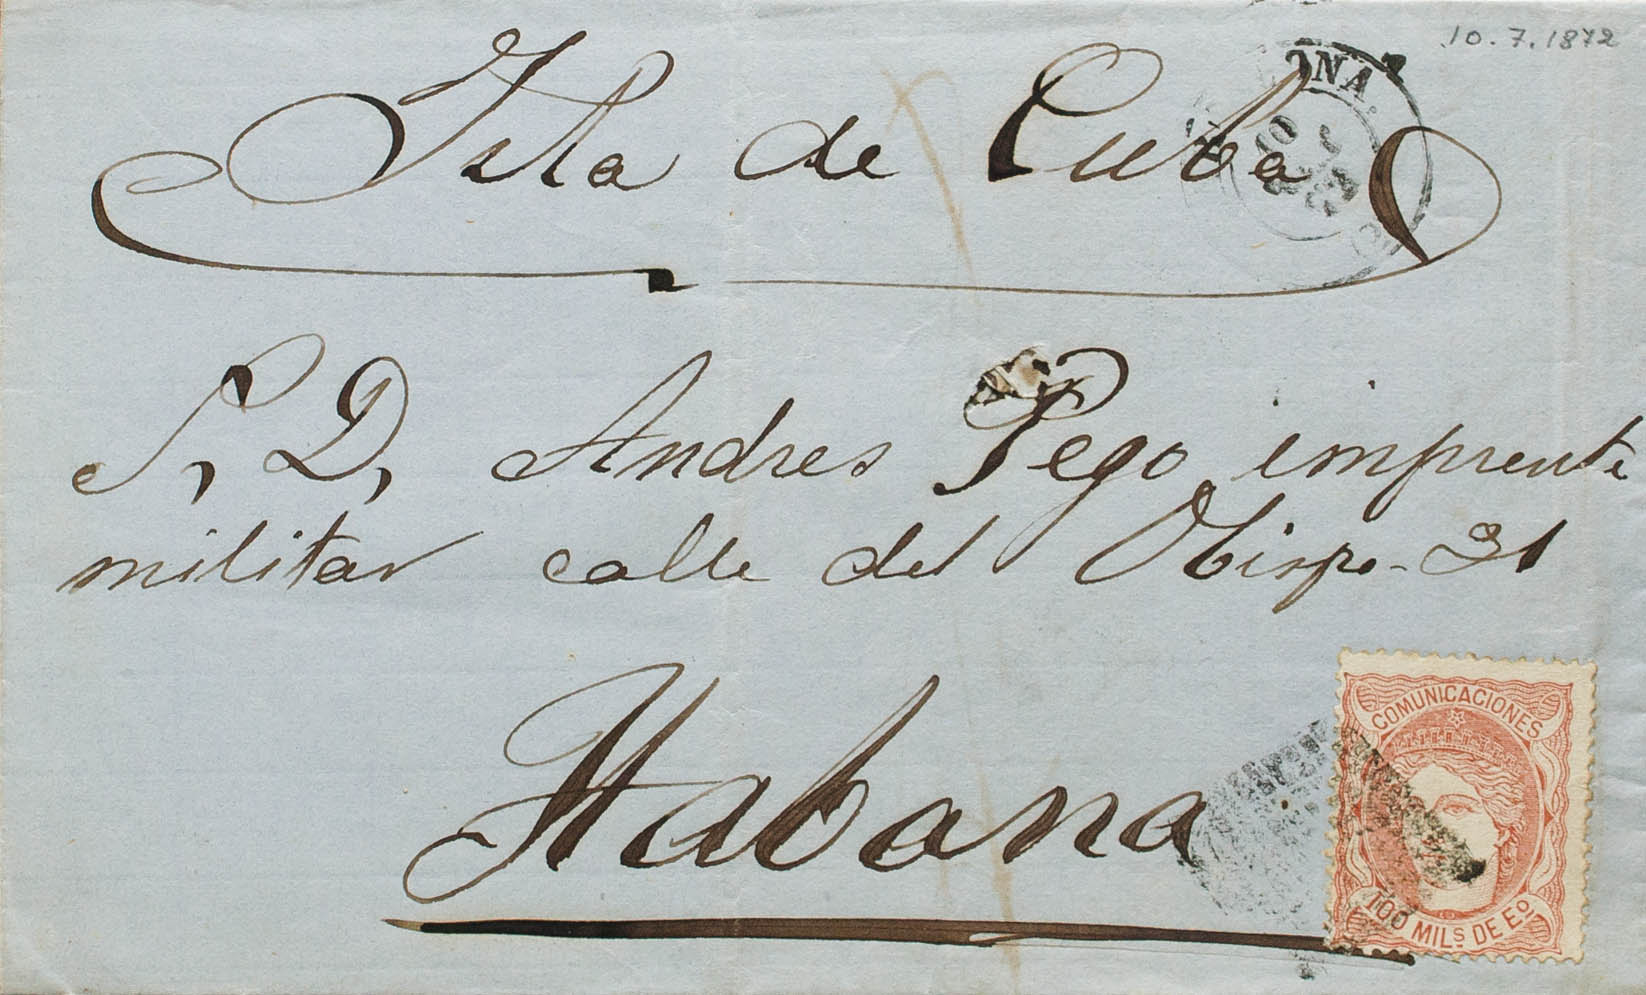 10.7.1872
Isla de Cuba
S, D, Andres Pego imprenta
militar calle del Obispo - 31
Habana
COMUNICACIONES
100 MILS DE Eo